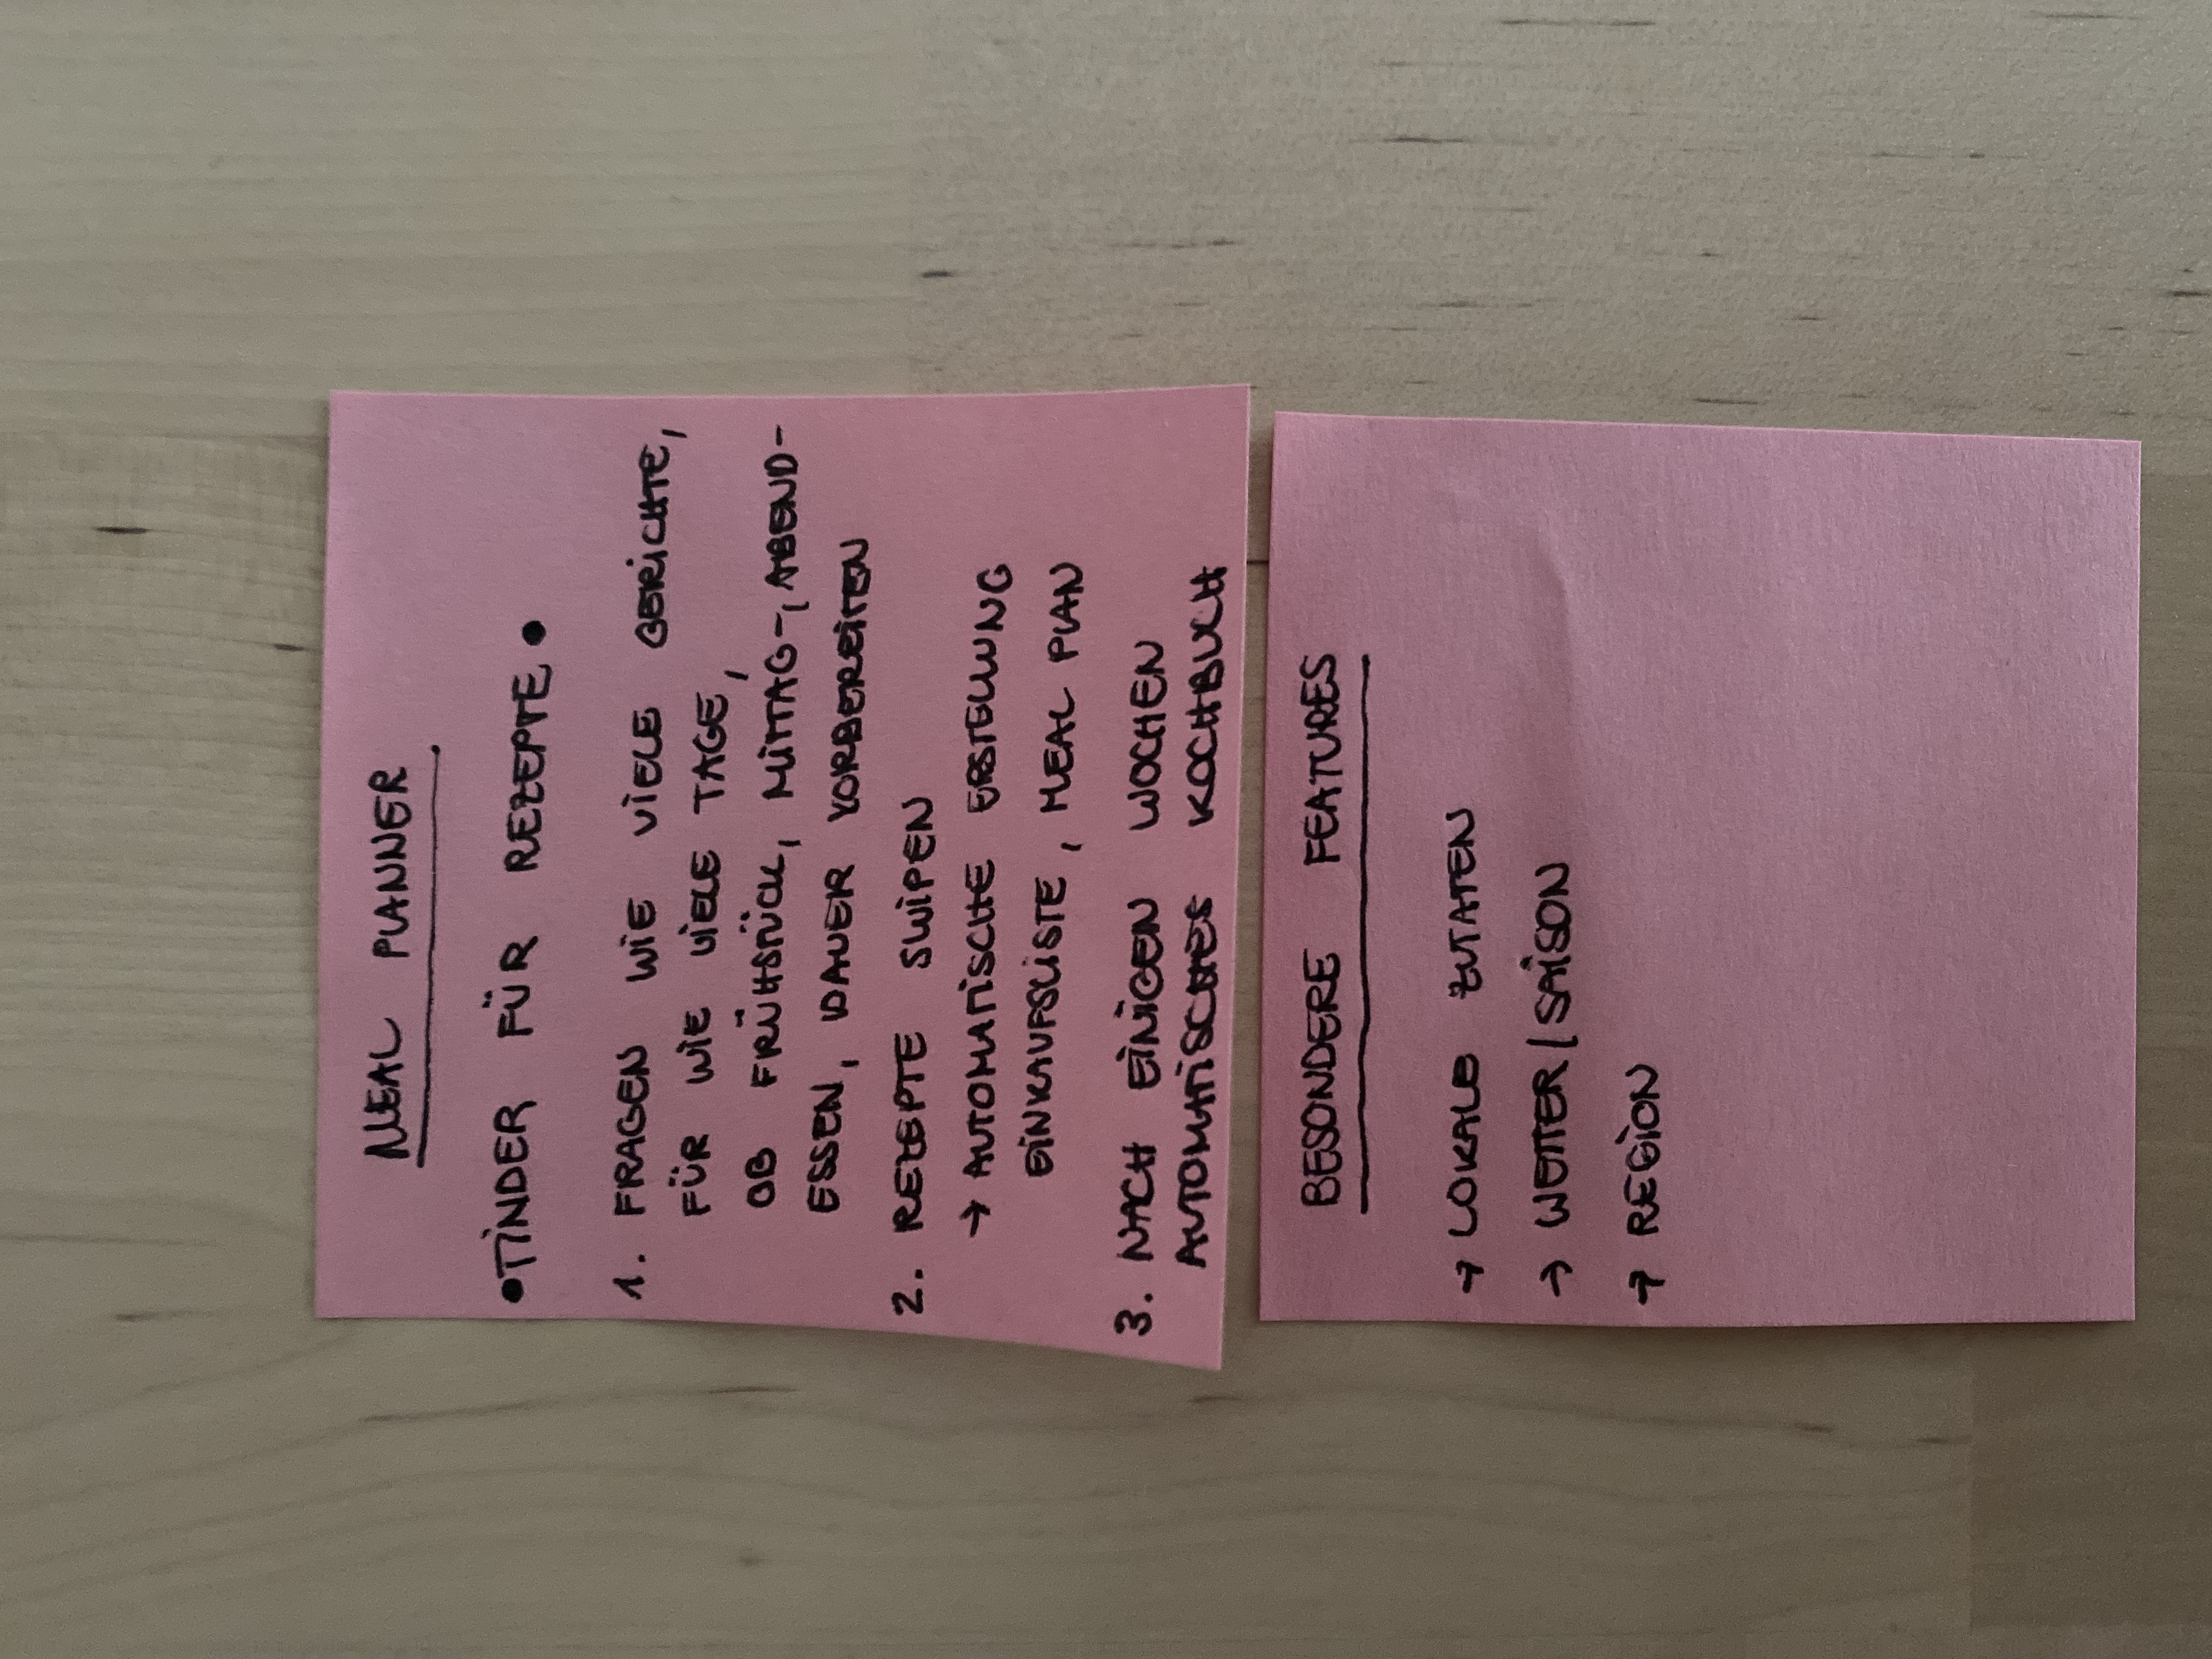 MEAL PLANNER
•TINDER FÜR REZEPTE•
1. FRAGEN WIE VIELE GERICHTE,
FÜR WIE VIELE TAGE,
OB FRÜHSTÜCK, MITTAG-, ABEND-
ESSEN, DAUER VORBEREITEN
2. REZEPTE SWIPEN
→ AUTOMATISCHE ERSTELLUNG
EINKAUFSLISTE, MEAL PLAN
3. NACH EINIGEN WOCHEN
AUTOMATISCHES KOCHBUCH
BESONDERE FEATURES
→ LOKALE ZUTATEN
→ WETTER/SAISON
→ REGION